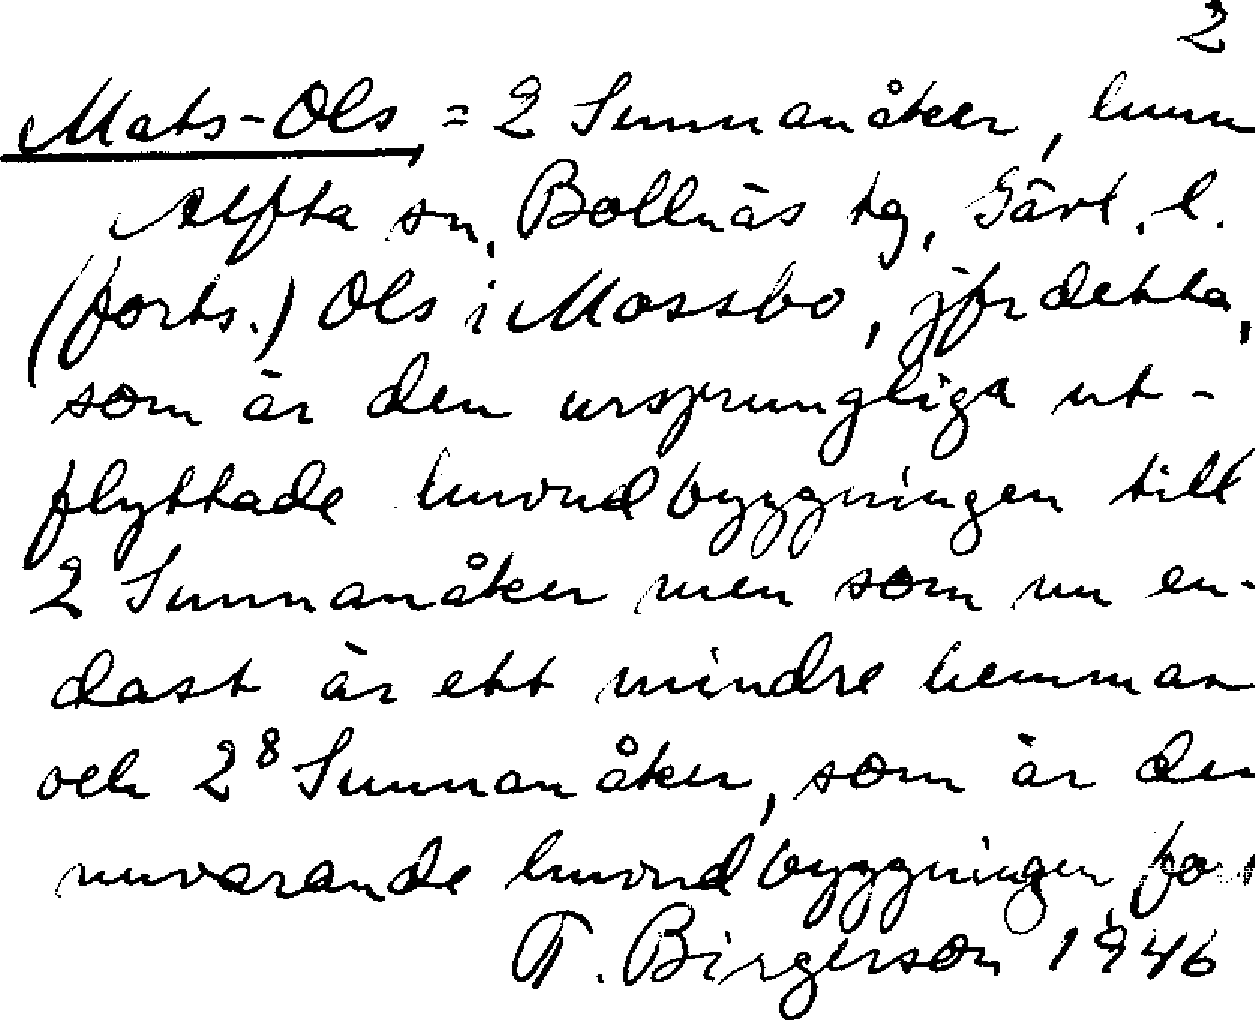 2
Mats-Ols = 2 Sunnanåker, hmn
Alfta sn, Bollnäs tg, Gävl. l.
(forts.) Ols i Mossbo, jfr detta,
som är den ursprungliga ut-
flyttade huvudbyggningen till
2 Sunnanåker men som nu en-
dast är ett mindre hemman
och 2⁸ Sunnanåker, som är den
nuvarande huvudbyggningen,
T. Birgerson 1946